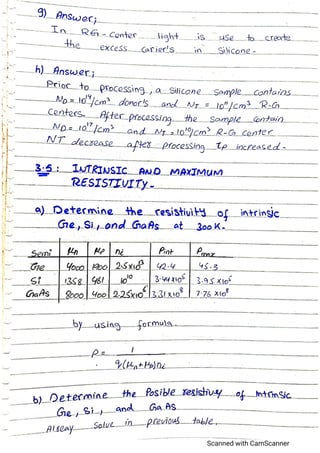 g) Answer;
In R-G - Center light is use to create
the excess carier's in Silicone -
h) Answer;
Prior to processing, a silicone sample contains
ND = 10¹⁴/cm³ donor's and NT = 10¹¹/cm³ R-G
Centers. After processing the sample contain
ND = 10¹⁷/cm³ and NT = 10¹⁰/cm³ R-G center.
NT decrease after processing τp increased.
3.5: INTRINSIC AND MAXIMUM
RESISTIVITY -
a) Determine the resistivity of intrinsic
Ge, Si, and GaAs at 300K-
Semi μn μp ni Pint Pmax
Ge 4000 1900 2.5x10¹³ 42.4 45.3
Si 1358 461 10¹⁰ 3.44x10⁵ 3.95x10⁵
GaAs 8000 400 2.25x10⁶ 3.31x10⁸ 7.76x10⁸
by using formula.
ρ = 1
q(μn+μp)ni
b) Determine the Posible resistivity of intrinsic
Ge, Si, and GaAs
Alreay Solve in previous table.
Scanned with CamScanner